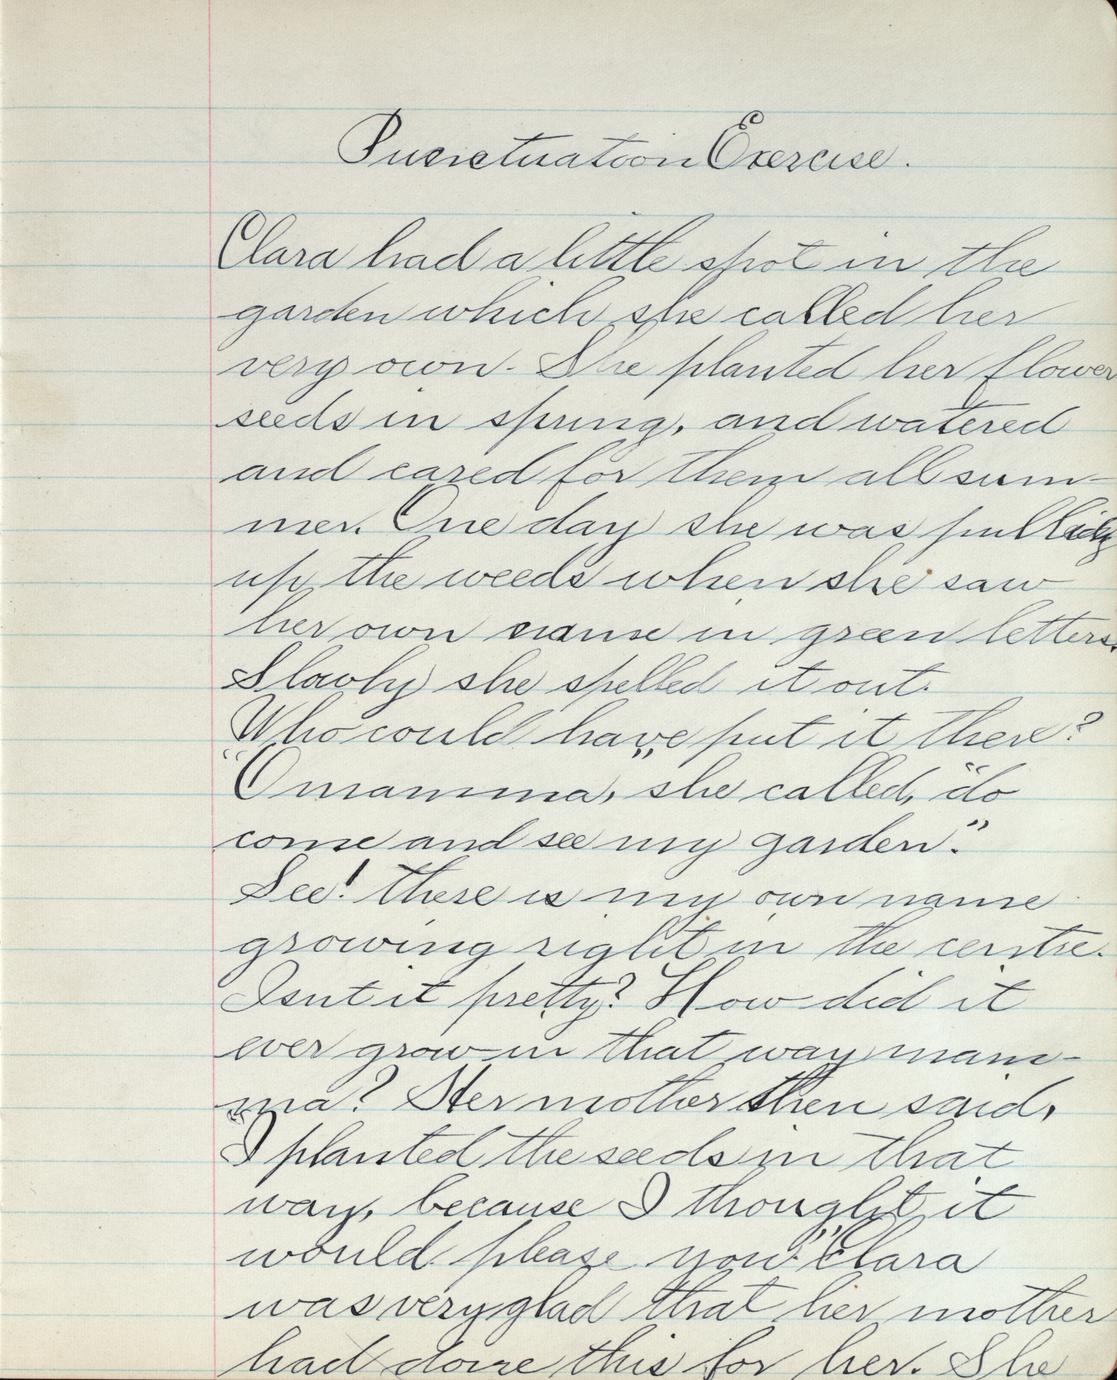 Punctuation Exercise.
Clara had a little spot in the
garden which she called her
very own. She planted her flower
seeds in spring, and watered
and cared for them all sum-
mer. One day she was pulling
up the weeds when she saw
her own name in green letters.
Slowly she spelled it out.
Who could have put it there?
"O mamma," she called, "do
come and see my garden."
See! there is my own name
growing right in the centre.
Isnt it pretty? How did it
ever grow in that way mam-
ma? Her mother then said,
"I planted the seeds in that
way, because I thought it
would please you." Clara
was very glad that her mother
had done this for her. She